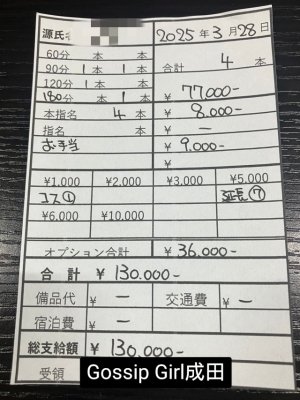 源氏名 2025年3月28日
60分 本 本 合計 4 本
90分 1 本 1 本
120分 1 本 本 ¥ 77000-
180分 本 1 本
本指名 4 本 ¥ 8.000-
指名 本 ¥ ー
お手当 ¥ 9.000-
¥1,000 ¥2,000 ¥3,000 ¥5,000
コス① 延長⑦
¥6,000 ¥10,000
オプション合計 ¥ 36.000-
合計 ¥ 130.000-
備品代 ¥ ー 交通費 ¥ ー
宿泊費 ¥ ー
総支給額 ¥ 130,000-
受領
Gossip Girl成田